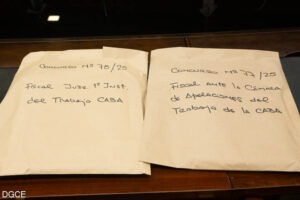 CONCURSO Nº 76/25
FISCAL JUZG. 1ª INST.
DEL TRABAJO CABA
CONCURSO Nº 77/25
FISCAL ANTE LA CÁMARA
DE APELACIONES DEL
TRABAJO DE LA CABA
DGCE